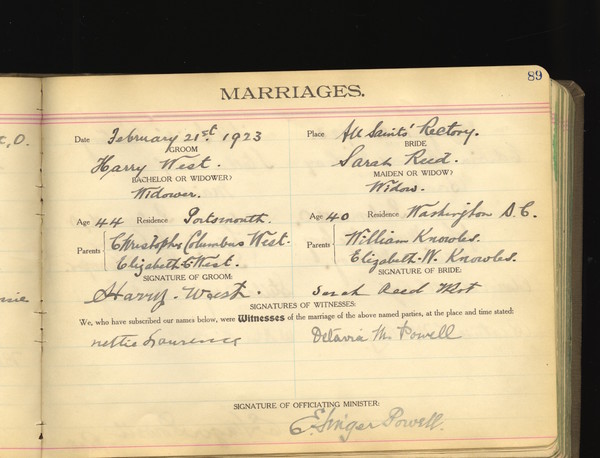 89
MARRIAGES.
Date February 21st. 1923 Place All Saints' Rectory.
GROOM BRIDE
Harry West. Sarah Reed.
BACHELOR OR WIDOWER? MAIDEN OR WIDOW?
Widower. Widow.
Age 44 Residence Portsmouth. Age 40 Residence Washington D.C.
Parents Christopher Columbus West. Parents William Knowles.
Elizabeth West. Elizabeth W. Knowles.
SIGNATURE OF GROOM: SIGNATURE OF BRIDE:
Harry West. Sarah Reed West
SIGNATURES OF WITNESSES:
We, who have subscribed our names below, were Witnesses of the marriage of the above named parties, at the place and time stated:
Nettie Lawrence M. Powell
SIGNATURE OF OFFICIATING MINISTER:
E. Singer Powell.